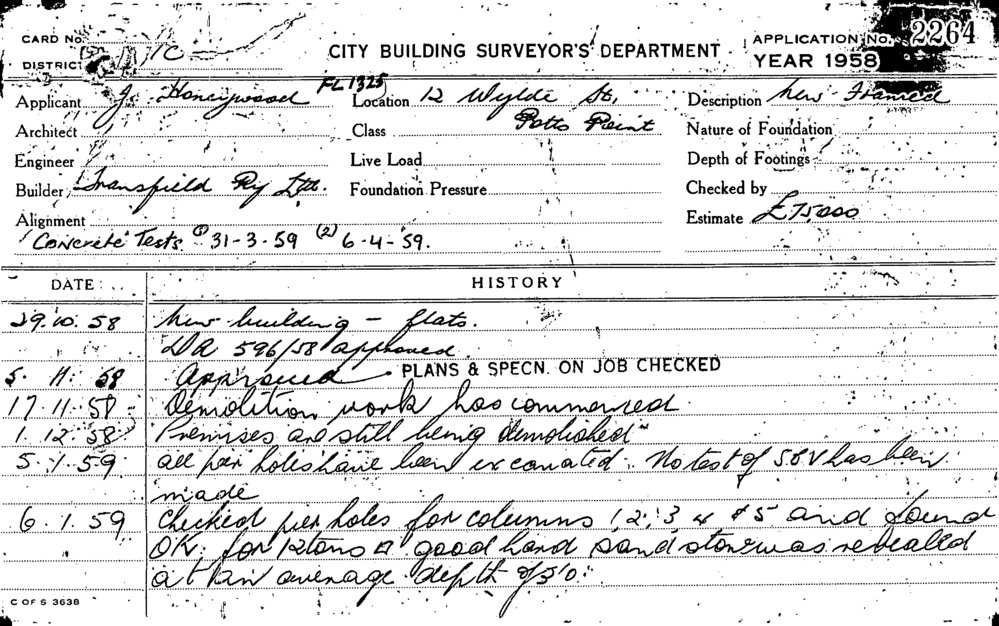 CARD No.
CITY BUILDING SURVEYOR'S DEPARTMENT
APPLICATION No. 2264
DISTRICT
YEAR 1958
FL1325
Applicant J. Honeywood Location 12 Wylde St, Description New Framed
Architect Class Potts Point Nature of Foundation
Engineer Live Load Depth of Footings
Builder Transfield Pty Ltd. Foundation Pressure Checked by
Alignment Estimate £75000
Concrete Tests (1) 31-3-59 (2) 6-4-59.
DATE HISTORY
29.10.58 New building - flats.
DA 596/58 approved
5. 11. 58 Approved PLANS & SPECN. ON JOB CHECKED
17.11.58 Demolition work has commenced
1.12.58 Premises are still being demolished
5.1.59 All pier holes have been excavated. No test of SBV has been
made
6.1.59 Checked pier holes for columns 1, 2, 3, 4 & 5 and found
OK. for 12 tons □ good hard sandstone was revealed
at an average depth of 5'0"
C OF S 3638